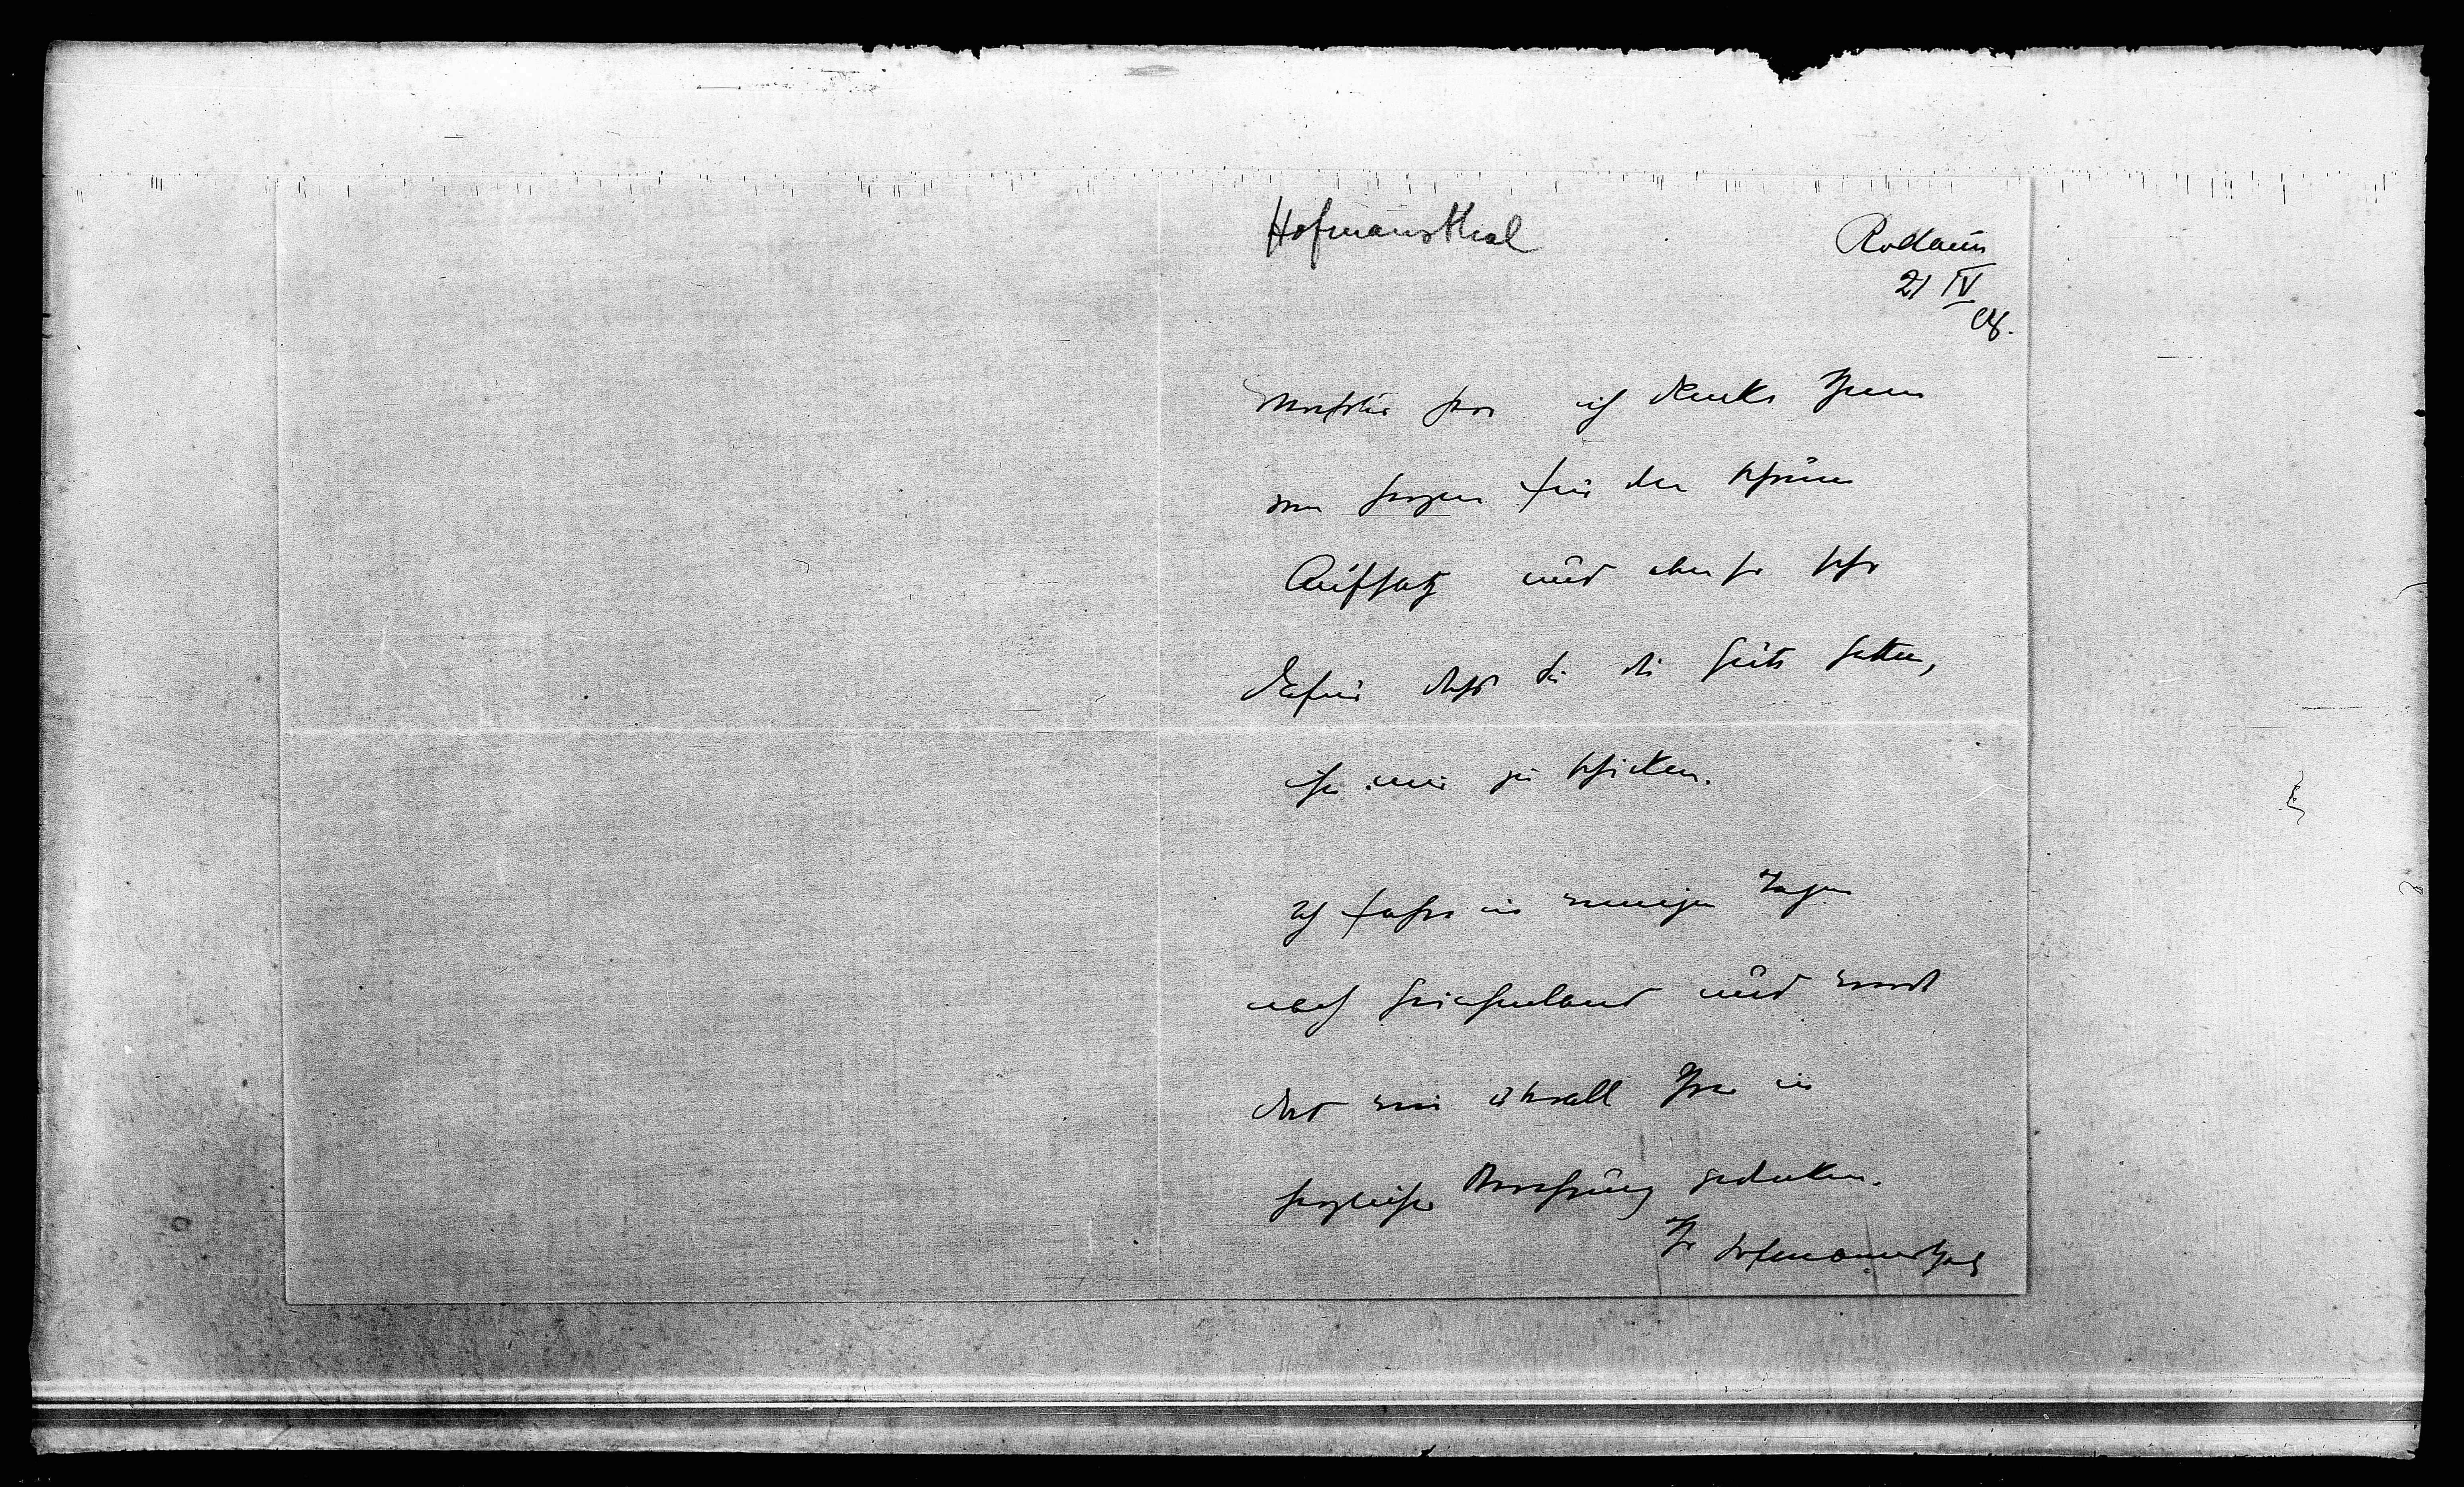 Hofmannsthal
Rodaun
21 IV
08.
Verehrter Herr ich danke Ihnen
von Herzen für den schönen
Aufsatz und ebenso sehr
dafür dass Sie die Güte hatten,
ihn mir zu schicken.
Ich fahre in wenigen Tagen
nach Griechenland und werde
dort wie überall Ihrer in
herzlicher Verehrung gedenken.
Ihr Hofmannsthal